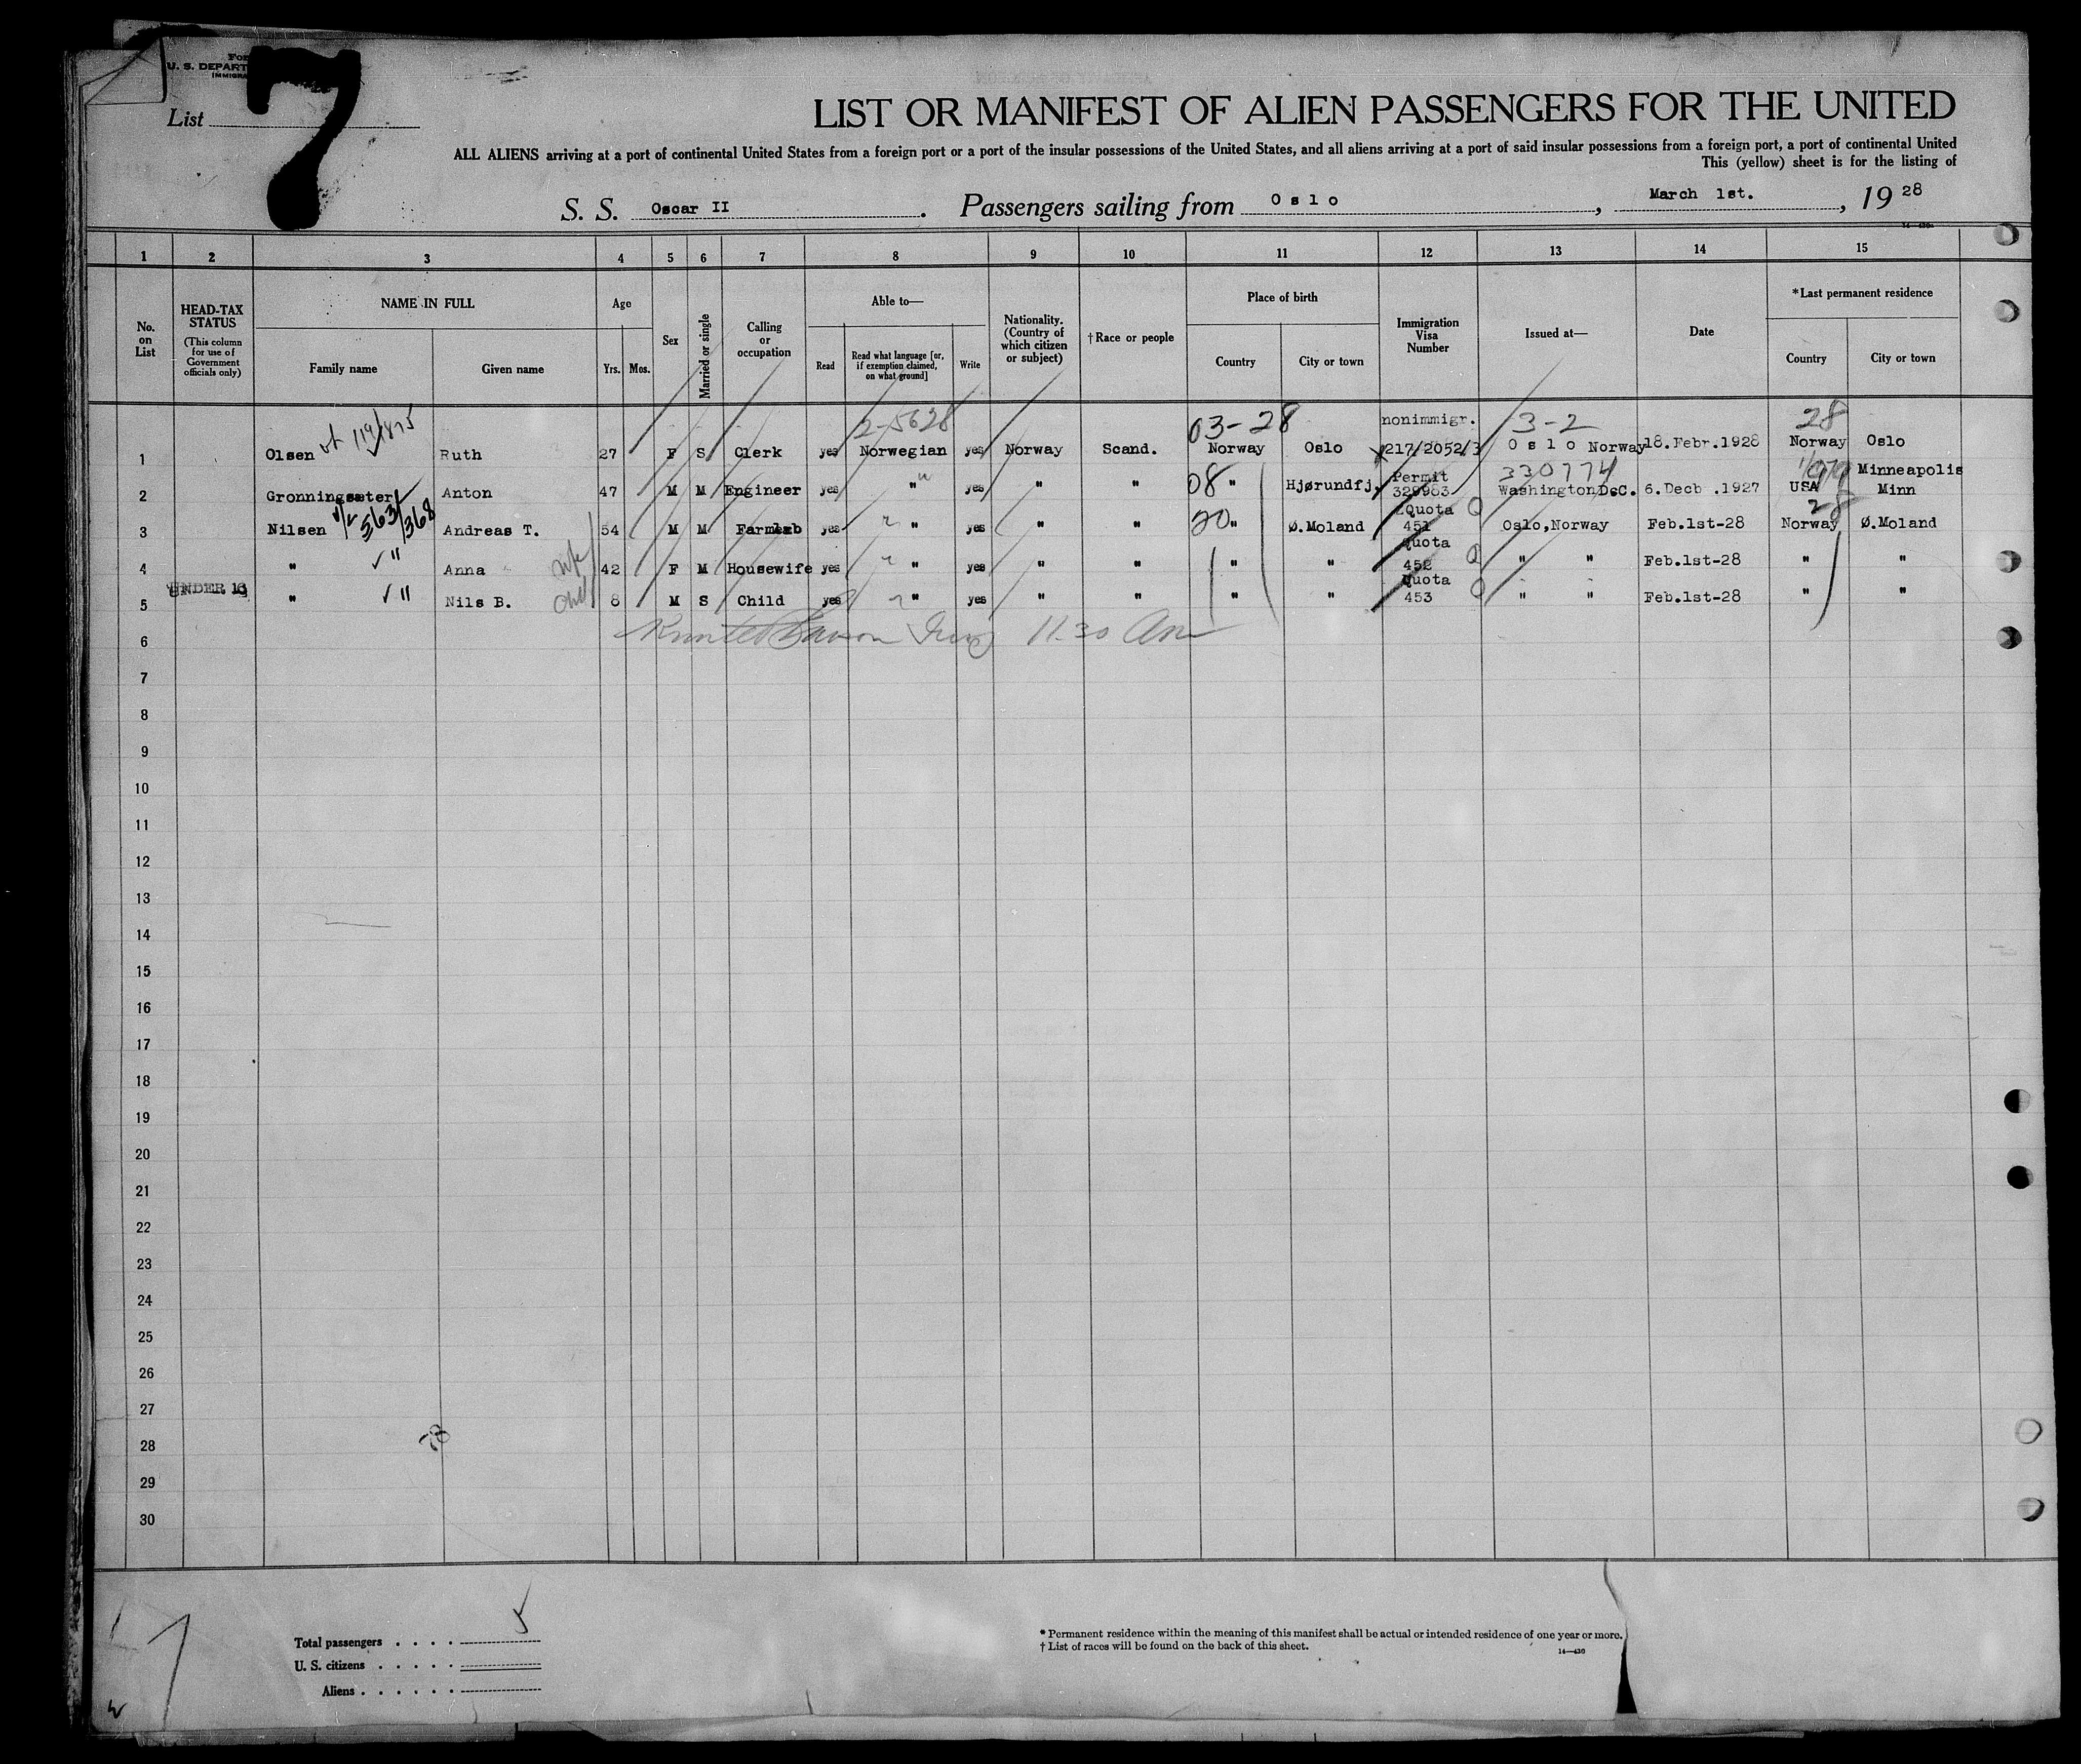 For
U. S. DEPART
IMMIGRA
List 7
LIST OR MANIFEST OF ALIEN PASSENGERS FOR THE UNITED
ALL ALIENS arriving at a port of continental United States from a foreign port or a port of the insular possessions of the United States, and all aliens arriving at a port of said insular possessions from a foreign port, a port of continental United
This (yellow) sheet is for the listing of
S. S. Oscar II. Passengers sailing from Oslo, March 1st., 19 28
1 2 3 4 5 6 7 8 9 10 11 12 13 14 15
No. on List
HEAD-TAX STATUS
(This column for use of Government officials only)
NAME IN FULL
Family name
Given name
Age
Yrs. Mos.
Sex
Married or single
Calling or occupation
Able to—
Read
Read what language [or, if exemption claimed, on what ground]
Write
Nationality. (Country of which citizen or subject)
†Race or people
Place of birth
Country
City or town
Immigration Visa Number
Issued at—
Date
*Last permanent residence
Country
City or town
2-5628 03-28 nonimmigr. 3-2 28
1 Olsen Ruth 27 F S Clerk yes Norwegian yes Norway Scand. Norway Oslo 217/2052/3 Oslo Norway 18.Febr.1928 Norway Oslo
330774
2 Gronningsæter Anton 47 M M Engineer yes " yes " " 08 " Hjørundfj. Permit 329983 Washington D.C. 6.Decb .1927 USA Minneapolis Minn
28
3 Nilsen 563/368 Andreas T. 54 M M Farmlab yes " yes " " 20 " Ø.Moland Quota 451 Q Oslo,Norway Feb.1st-28 Norway Ø.Moland
4 " " Anna Wife 42 F M Housewife yes " yes " " " " Quota 452 Q " " Feb.1st-28 " "
5 UNDER 16 " " Nils B. Child 8 M S Child yes " yes " " " " Quota 453 Q " " Feb.1st-28 " "
6 11.30 Am
7
8
9
10
11
12
13
14
15
16
17
18
19
20
21
22
23
24
25
26
27
28
29
30
Total passengers . . . . 5
U. S. citizens . . . . .
Aliens . . . . . .
* Permanent residence within the meaning of this manifest shall be actual or intended residence of one year or more.
† List of races will be found on the back of this sheet.
14—430